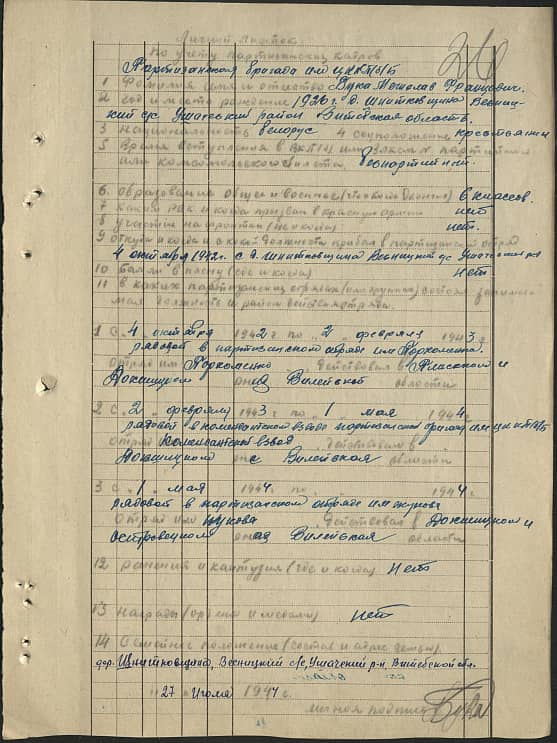 Личный листок
по учету партизанских кадров
Партизанская бригада им ЦК КП/б/Б
1 Фамилия имя и отчество Бука Мечислав Францевич.
2 Год и место рождение 1926 г. д. Шнитковщина Весниц-
кий с/с Ушачский район Витебская область.
3 Национальность белорус 4 Соцположение крестьянин
5 Время вступления в ВКП(б) или ВЛКСМ № партийного
или комсомольского билета беспартийный.
6. Образование общее и военное (что когда окончил) 6 классов.
7 Каким РВК и когда призван в красную армию нет
8 Участие на фронтах (где и когда) нет.
9 Откуда и когда и в какой должности прибыл в партизанский отряд
4 октября 1942 г. с д. Шнитковщина Весницкий с/с Ушачский р-н
10 Был ли в плену (где и когда) Нет
11 В каких партизанских отрядах (или группах) состоял занимае-
мая должность и район действия отряда.
1 С "4 октября 1942 г по "2" февраля 1943 г.
рядовой в партизанском отряде им Пархоменко.
Отряд им Пархоменко действовал в Плисском и
Докшицком р-нах Вилейской области
2 С "2" февраля 1943 г по "1" мая 1944 г.
рядовой в комендантском взводе партизанской бригады им ЦК КП/б/Б
Отряд Комендантский взвод действовал в
Докшицком р-не Вилейская области
3 С "1" мая 1944 г. по 1944 г.
рядовой в партизанском отряде им Жукова
Отряд им Жукова действовал в Докшицком и
Островецком р-нах Вилейская области
12 Ранения и контузия (где и когда) Нет
13 Награды (ордена и медали) нет
14 Семейное положение (состав и адрес семьи).
дер. Шнитковщина, Весницкий с/с, Ушачский р-н. Витебской обл.
"27" Июля 1944 г.
личная подпись Бука